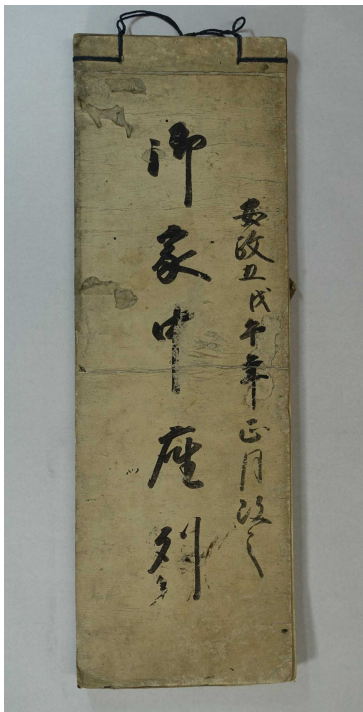 安政五戊午年正月改之
御家中座列